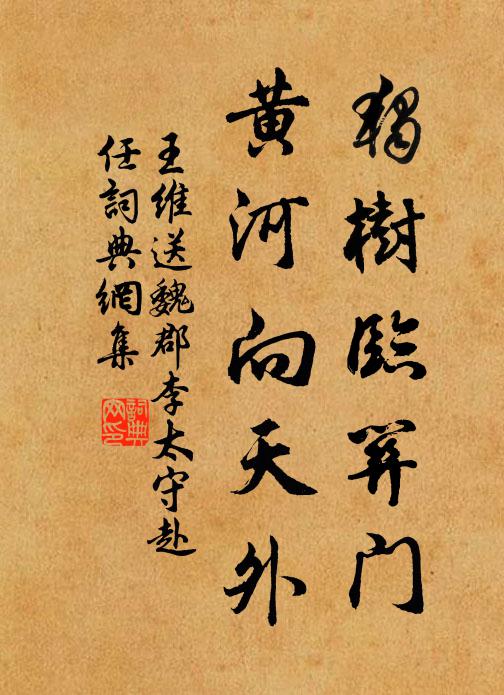 獨樹臨關門
黃河向天外
王維送魏郡李太守赴
任詞典網集
詞典網印